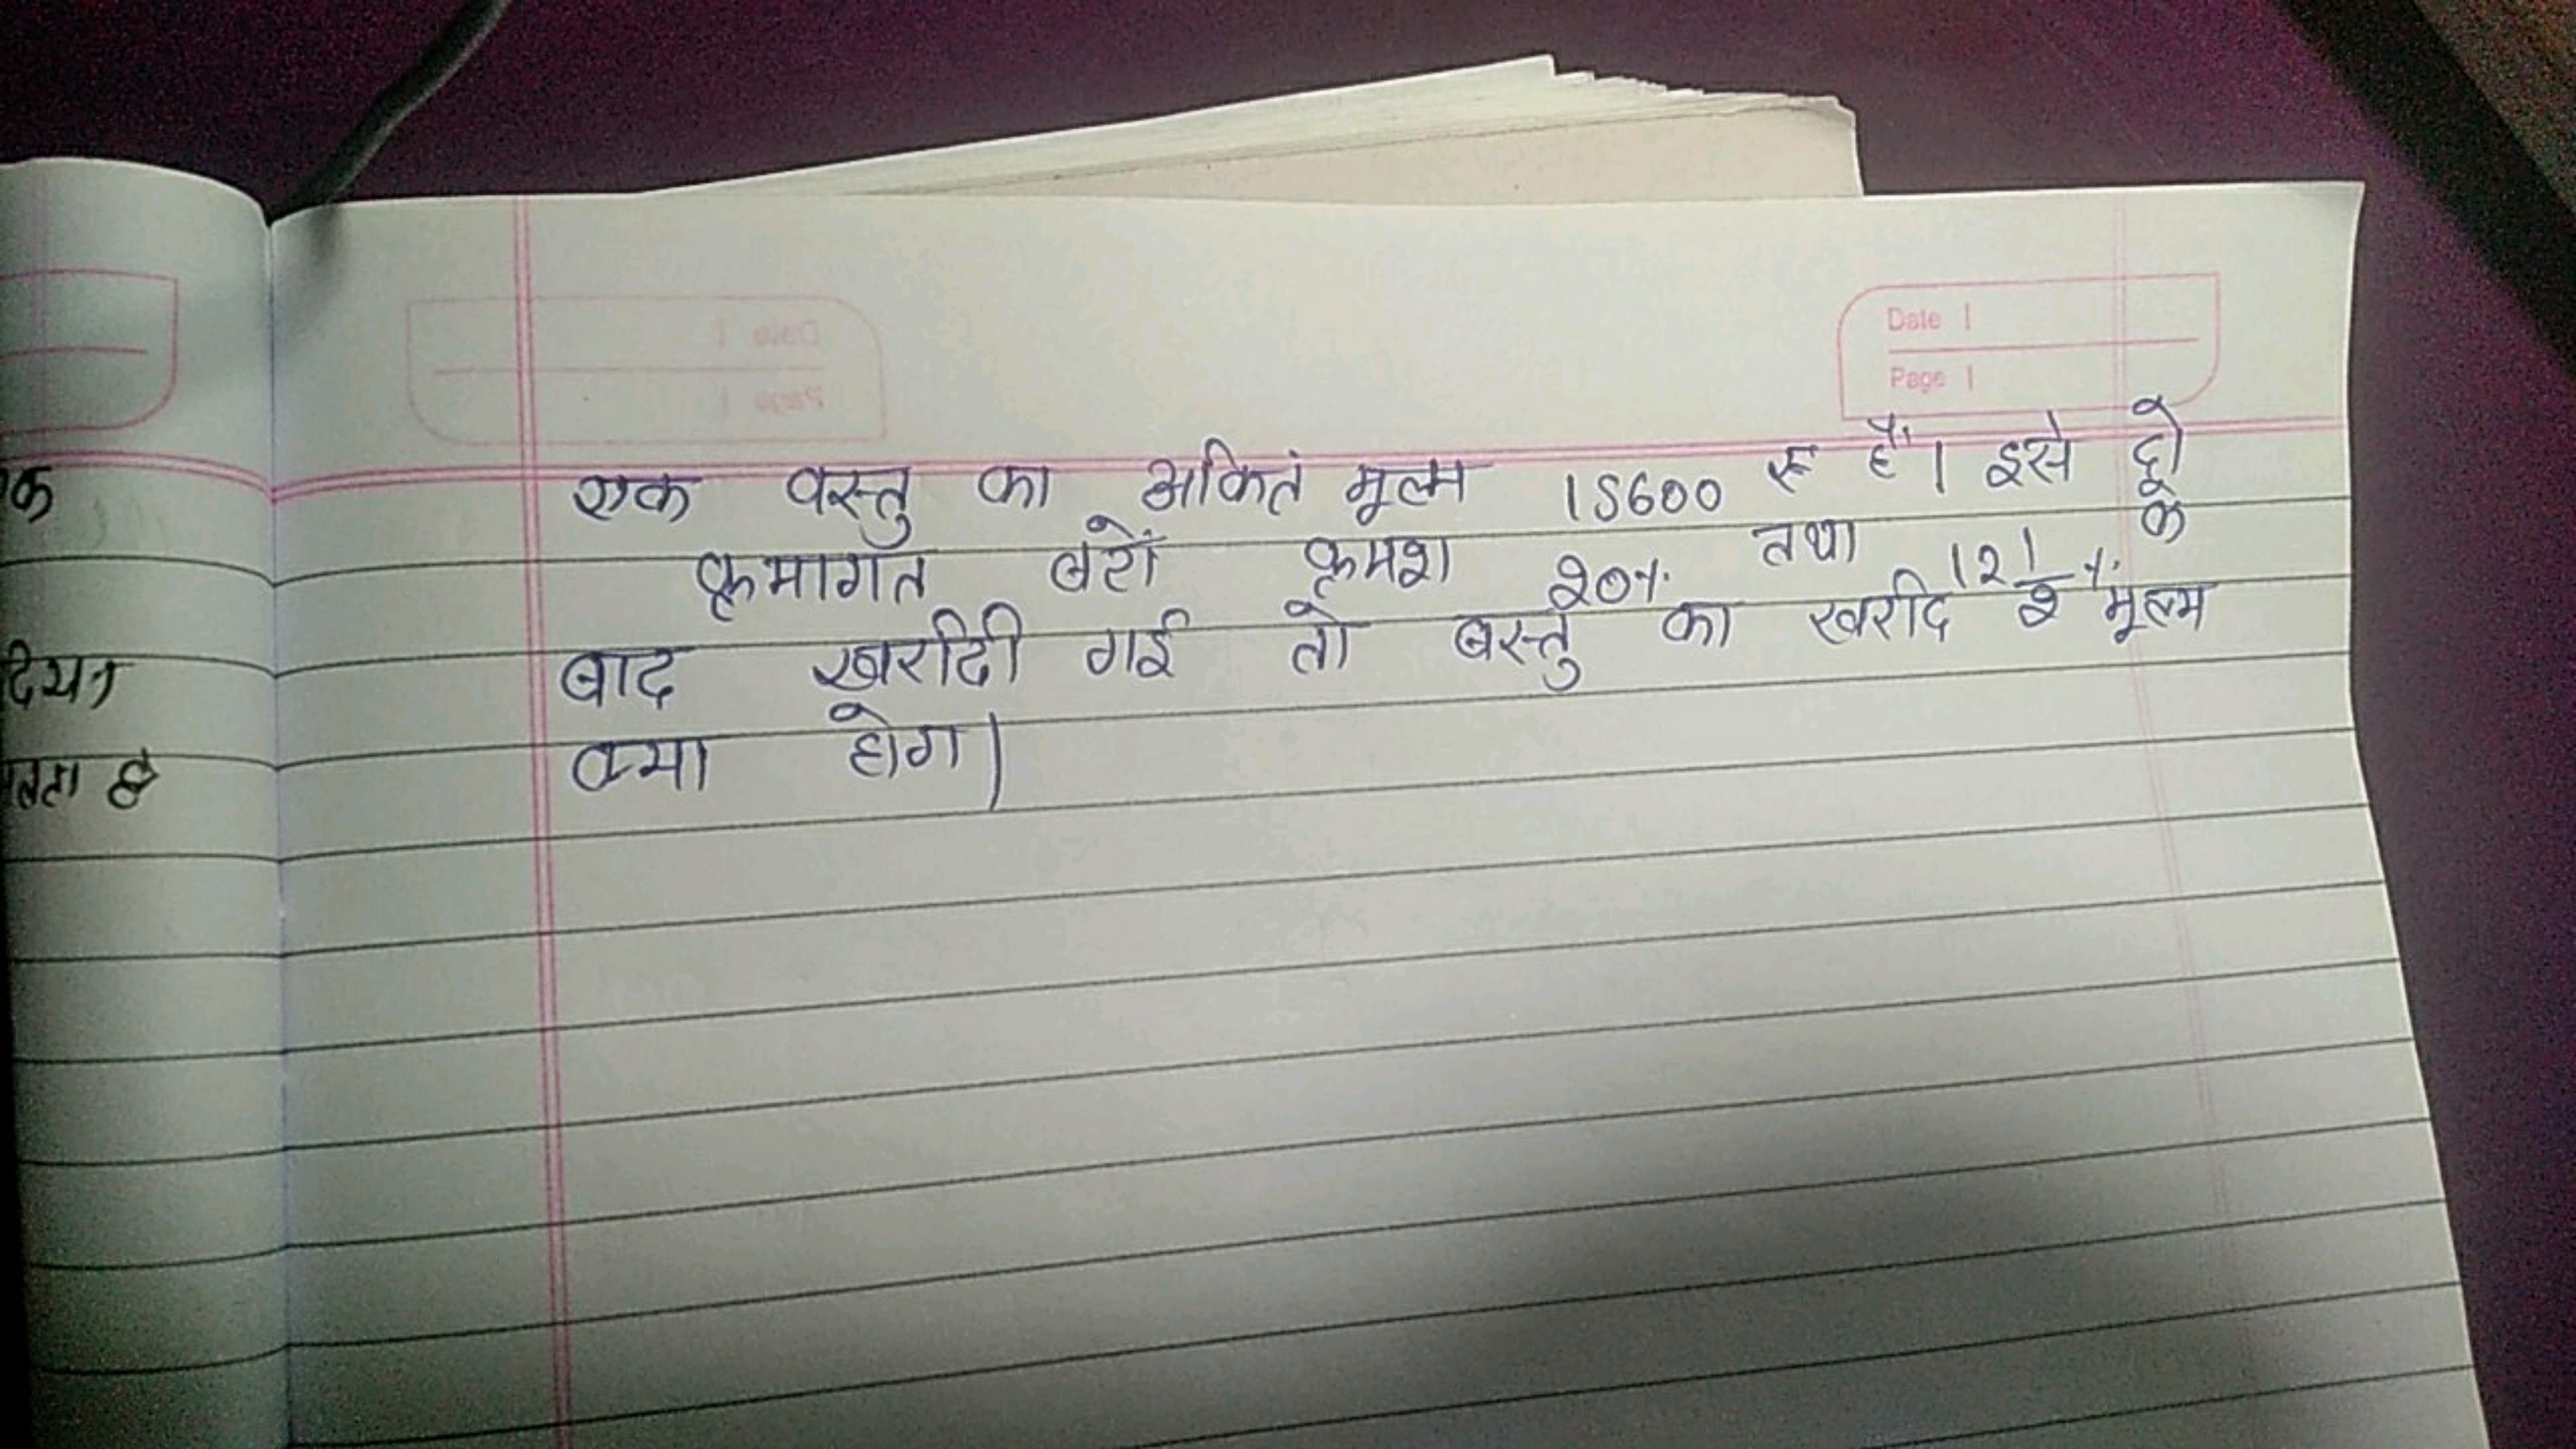 Date |
Page |
एक वस्तु का अकितं मूल्य 15600 रू हैं। इसे दो
क्रमागत बटों क्रमश 20% तथा 12 1/2 % के
बाद खरीदी गई तो बस्तु का खरीद मूल्य
क्या होगा|
क
दिया
है